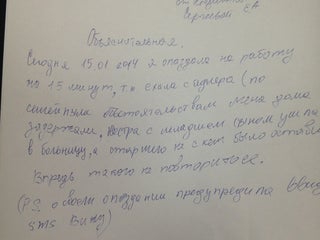 от
Сергеевой ЕА
Объяснительная.
Сегодня 15.01 2014 я опоздала на работу
на 15 минут, т.к ехала с адлера (по
обстоятельствам меня дома
задержали, сестра с младшем сыном ушла
в больницу, а старшего не с кем было
Впредь такого не повториться.
(P.S. о своём опоздании предупредила
SMS